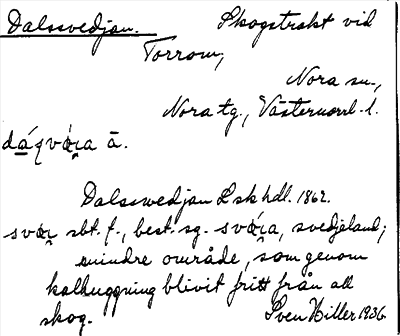 Dalssvedjan. Skogstrakt vid
Torrom,
Nora sn.,
Nora tg., Västernorrl. l.
dáɋvóɩ̯a ā.
Dalssvedjan Lskhdl. 1862.
svóɩ̯ sbt. f., best. sg. svóɩ̯a, svedjeland;
mindre område, som genom
kalhuggning blivit fritt från all
skog. Sven Hiller 1936.